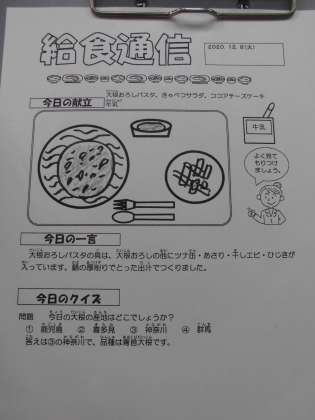 給食通信
2020.12.8(火)
今日の献立
大根おろしパスタ、きゃべつサラダ、ココアチーズケーキ
牛乳
牛乳
よく見て
もりつけ
ましょう。
今日の一言
大根おろしパスタの具は、大根おろしの他にツナ缶・あさり・干しエビ・ひじきが
入っています。鯖の厚削りでとった出汁でつくりました。
今日のクイズ
問題 今日の大根の産地はどこでしょうか?
① 鹿児島 ② 喜多見 ③ 神奈川 ④ 群馬
答えは③の神奈川で、品種は青首大根です。